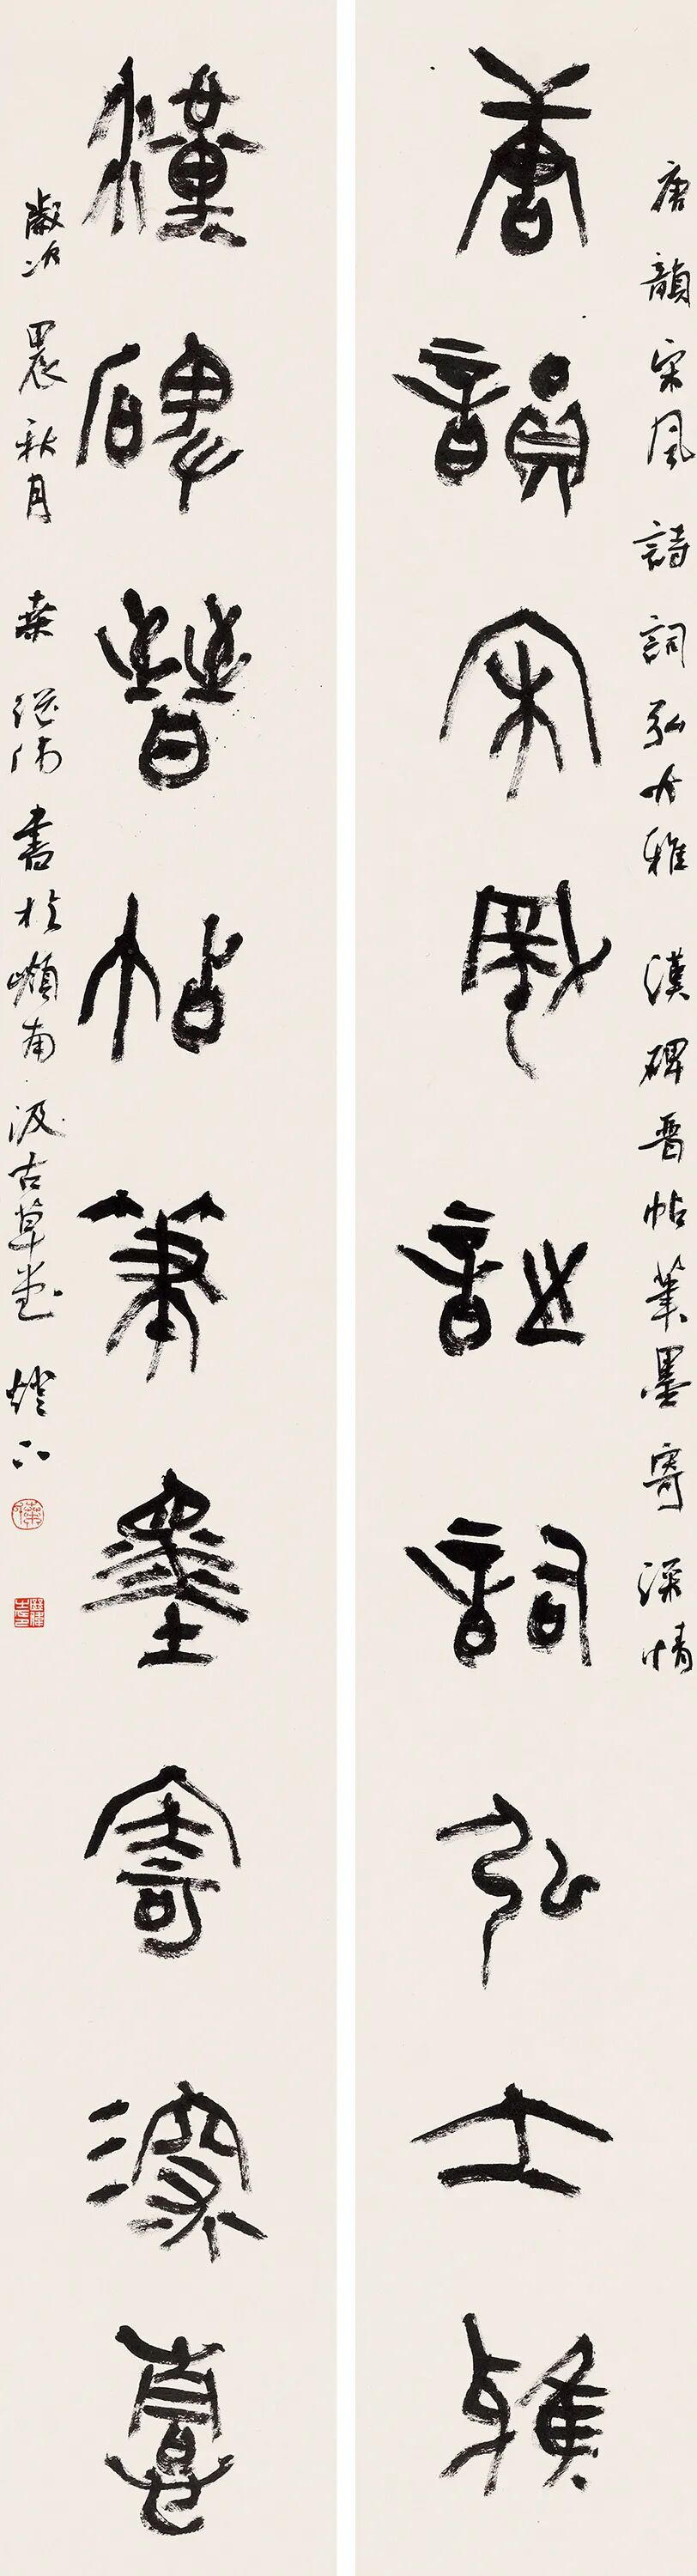 唐韻宋風詩詞弘雅漢碑晉帖筆墨寄深情
唐韻宋風詩詞弘士雅
漢碑晉帖筆墨寄深情
歲次甲辰秋月葉書於嶺南汲古草堂燈下